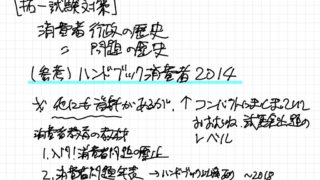 [択一試験対策]
消費者行政の歴史
= 問題の歴史
(参考) ハンドブック消費者2014
※ 他にも資料があるが、↑コンパクトにまとまっていて
おおむね、試験出題の
レベル
消費者教育の教材
1. 入門!消費者問題の歴史
2. 消費者問題年表 → ハンドブック消費者 ~2018